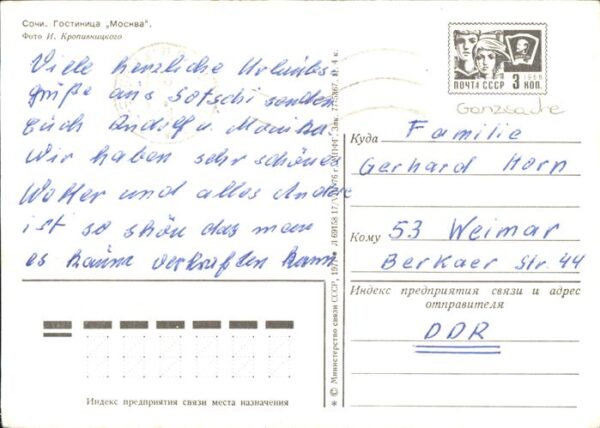 Сочи. Гостиница „Москва".
Фото И. Кропивницкого
Viele herzliche Urlaubs
grüße aus Sotschi senden
Euch Rudolf u. Monika
Wir haben sehr schönes
Wetter und alles Andere
ist so schön das man
es kaum verkraften kann
ПОЧТА СССР 3 КОП.
1966
Ganzsache
Куда Familie
Gerhard Horn
Кому 53 Weimar
Berkaer Str. 44
Индекс предприятия связи и адрес
отправителя
DDR
Индекс предприятия связи места назначения
* © Министерство связи СССР,